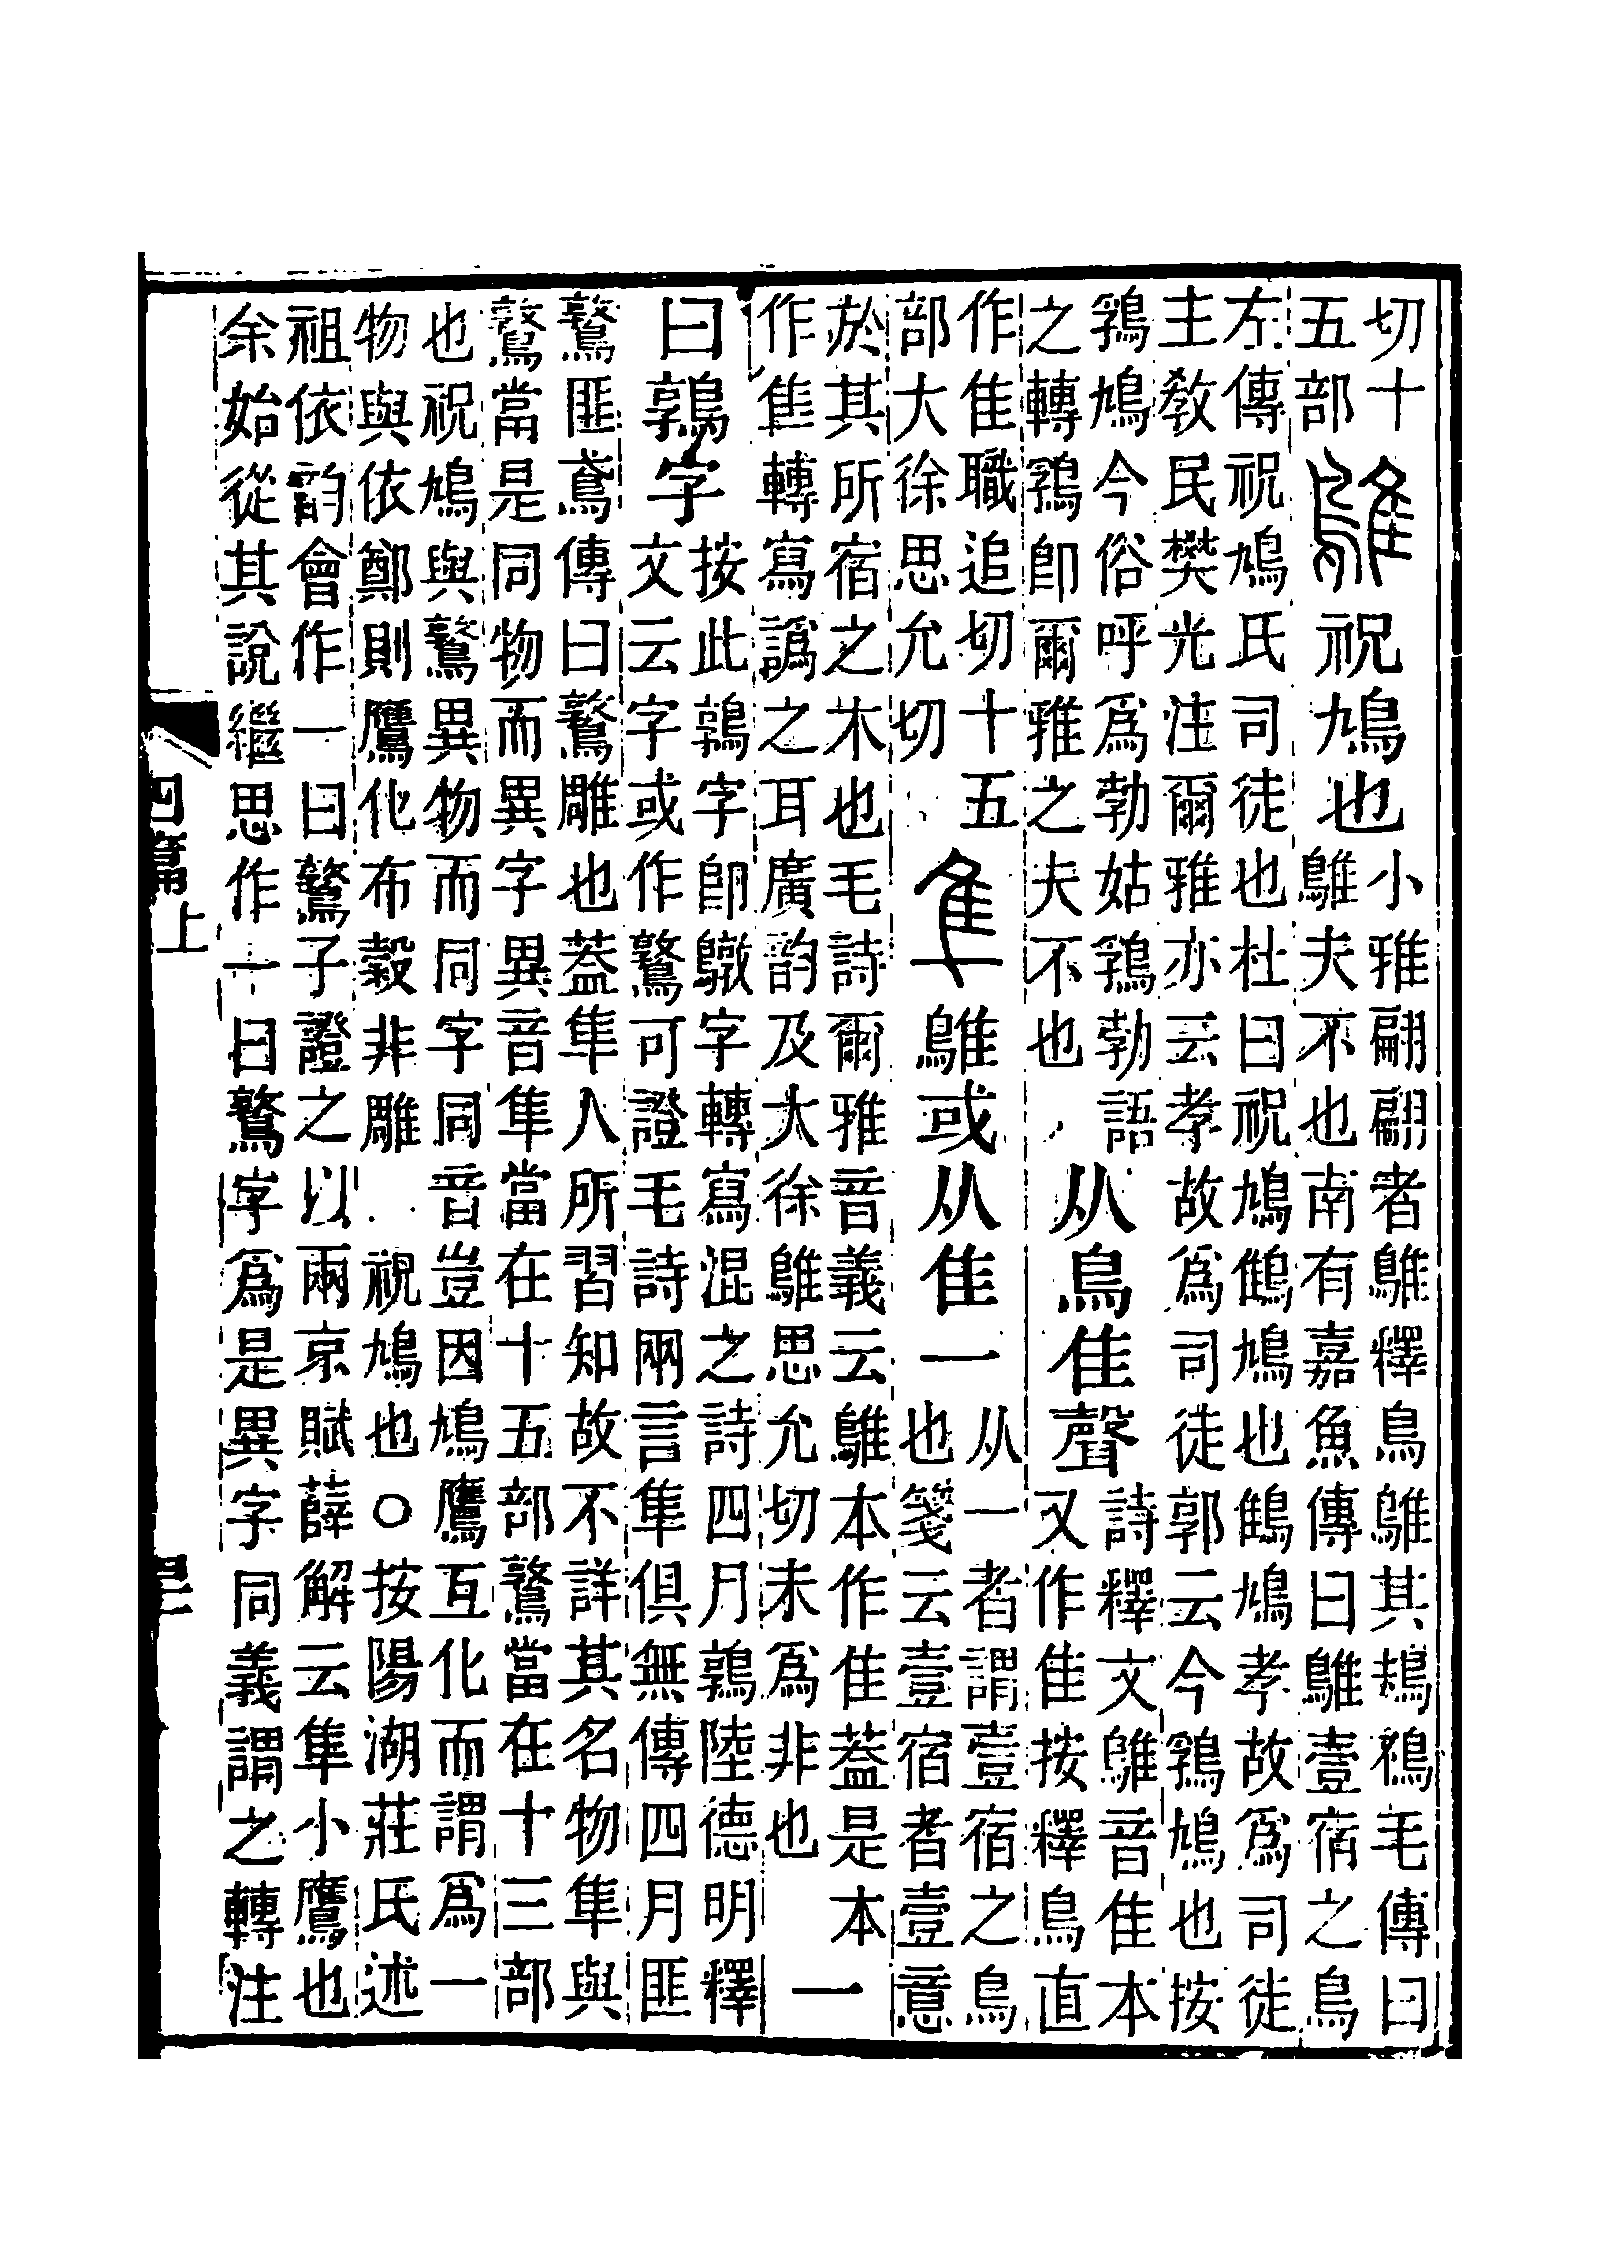 切十
五部
鵻祝鳩也
小雅翩翩者鵻釋鳥鵻其鳺鴀毛傳曰
鵻夫不也南有嘉魚傳曰鵻壹宿之鳥
左傳祝鳩氏司徒也杜曰祝鳩鷦鳩也鷦鳩孝故爲司徒
主教民樊光注爾雅亦云孝故爲司徒郭云今䳕鳩也按
䳕鳩今俗呼爲勃姑䳕勃語
之轉䳕卽爾雅之夫不也
从鳥隹聲
詩釋文鵻音隹本
又作隹按釋鳥直
作隹職追切十五
部大徐思允切
隼鵻或从隹一
从一者謂壹宿之鳥
也箋云壹宿者壹意
於其所宿之木也毛詩爾雅音義云鵻本作隹蓋是本
作隼轉寫譌之耳廣韵及大徐鵻思允切未爲非也
一
曰鶉字
按此鶉字卽鷻字轉寫混之詩四月鶉陸德明釋
文云字或作鷻可證毛詩兩言隼俱無傳四月匪
鷻匪鳶傳曰鷻雕也蓋隼人所習知故不詳其名物隼與
鷻當是同物而異字異音隼當在十五部鷻當在十三部
也祝鳩與鷻異物而同字同音豈因鳩鷹互化而謂爲一
物與依鄭則鷹化布穀非雕祝鳩也○按陽湖莊氏述
祖依韵會作一曰鷻子證之以兩京賦薛解云隼小鷹也
余始從其說繼思作一曰鷻字爲是異字同義謂之轉注
四篇上